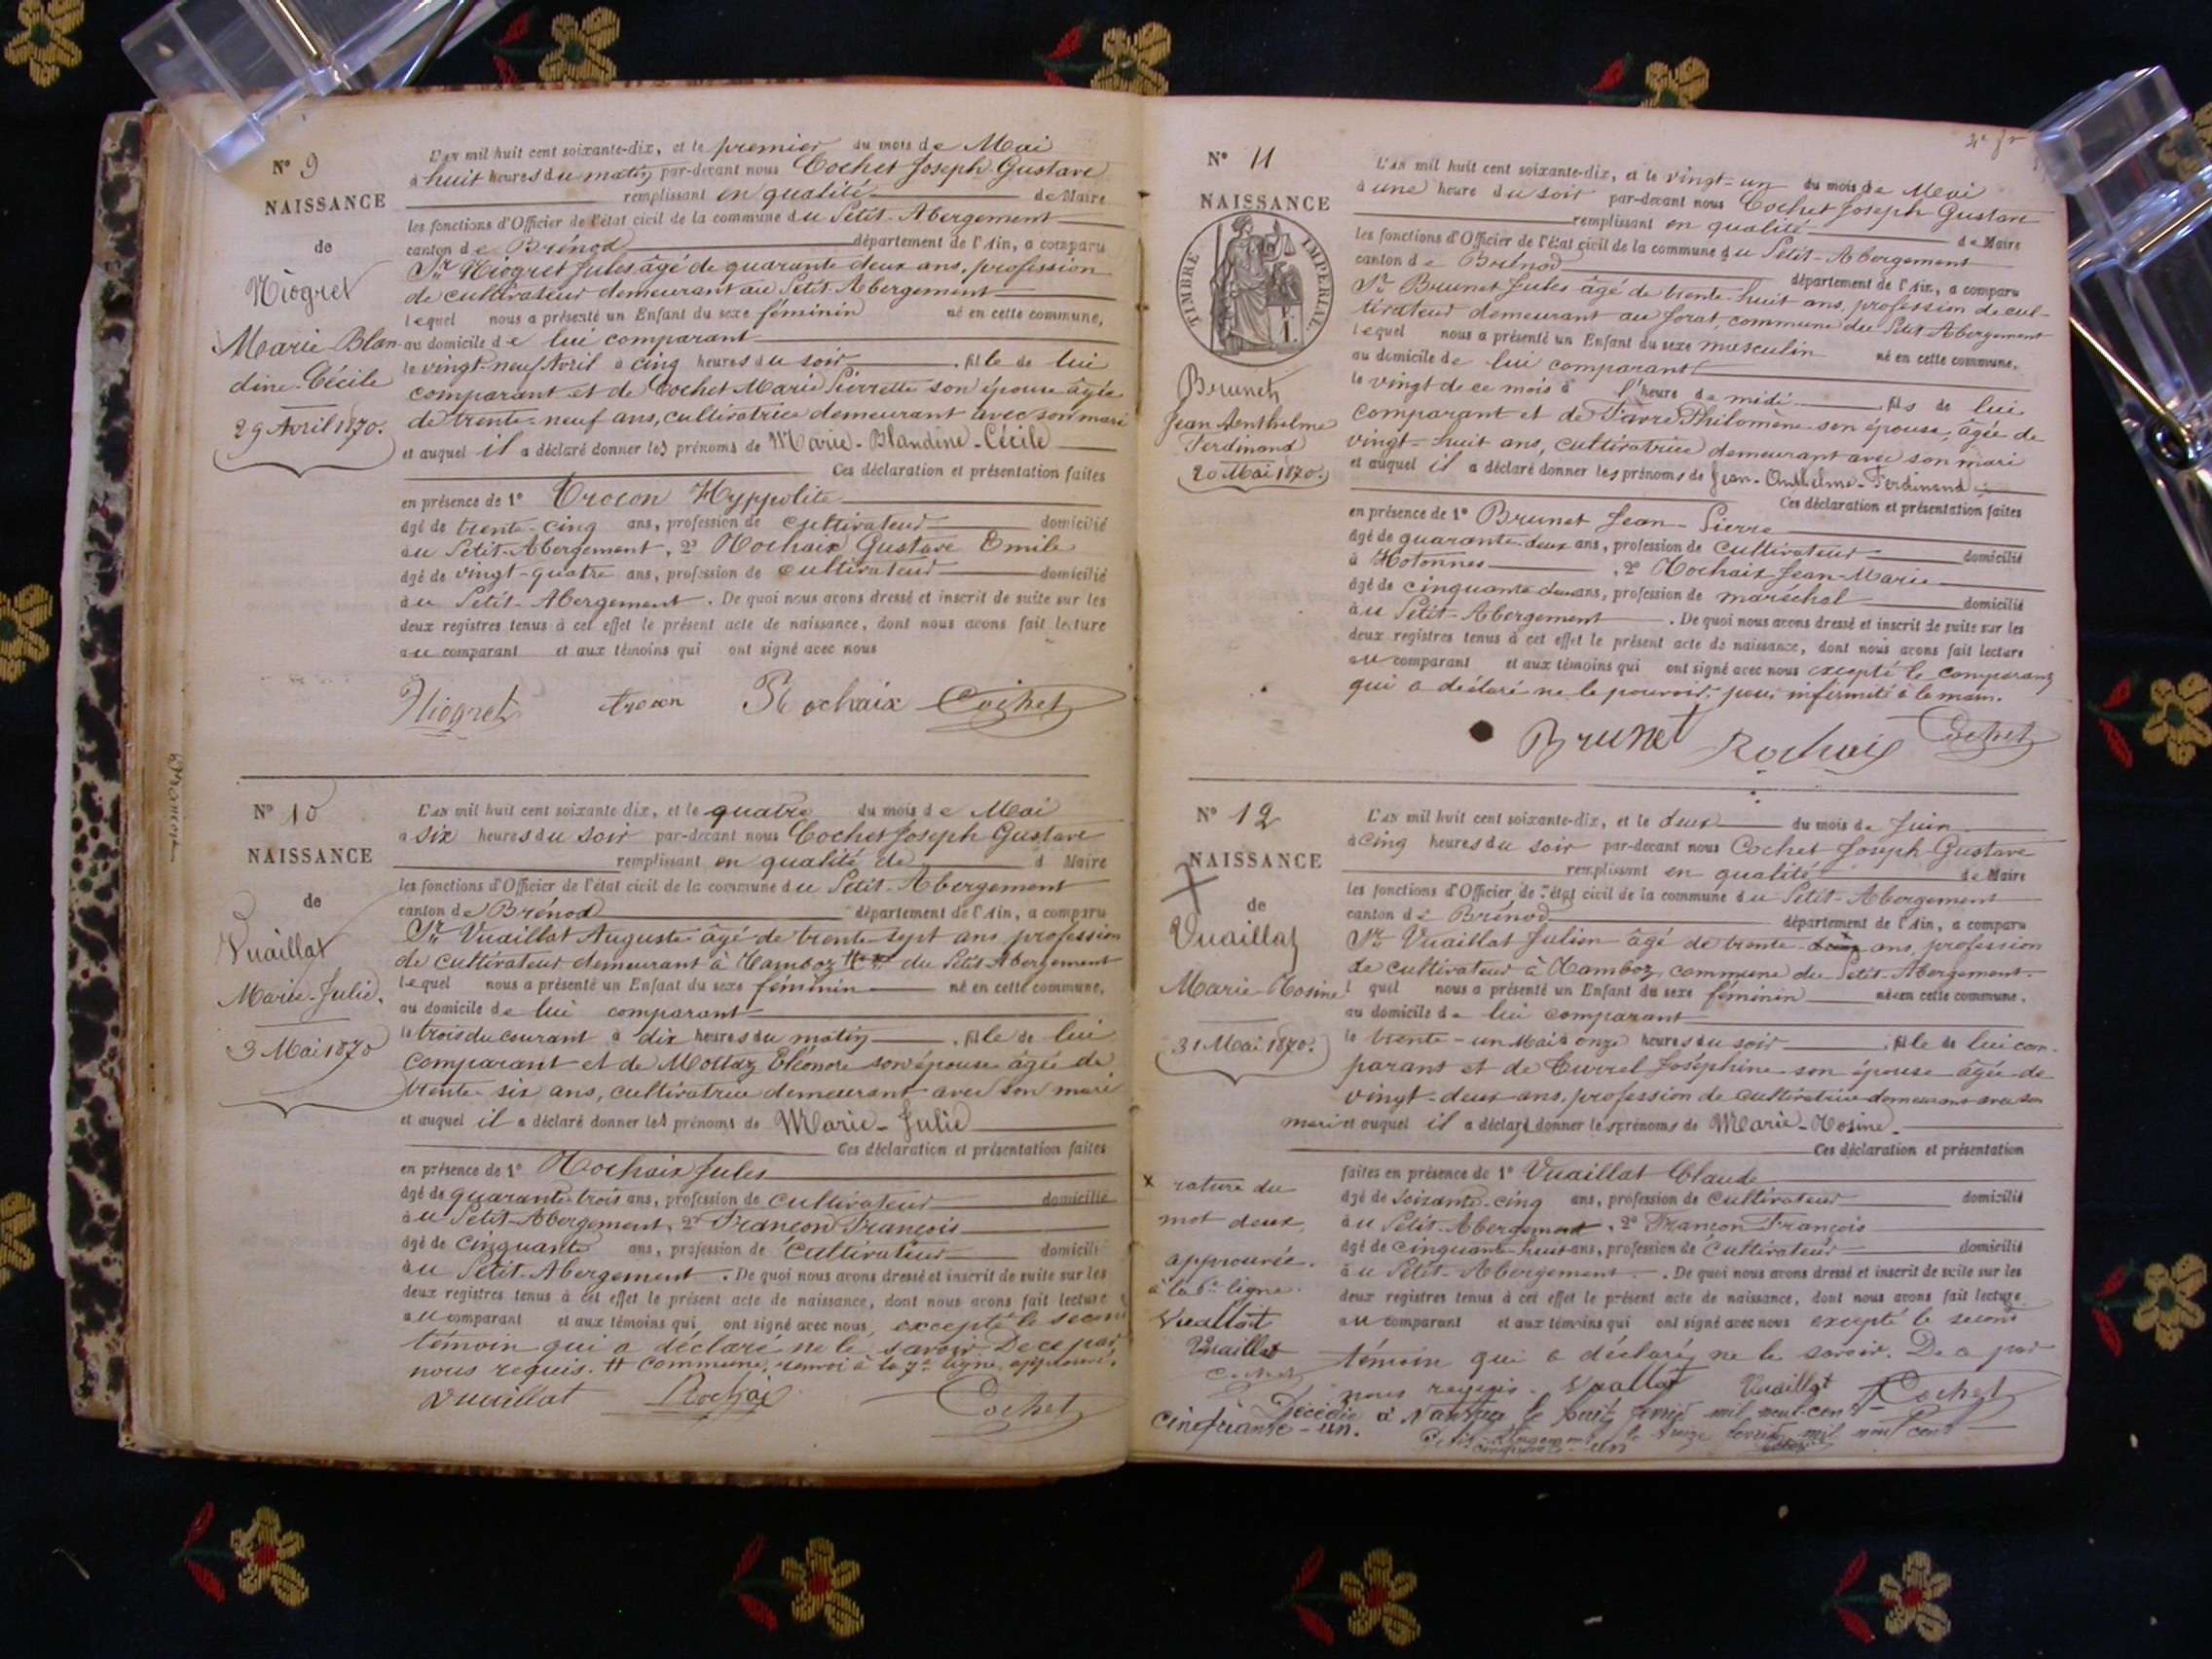 N° 9
NAISSANCE
de
Niogret
Marie-Blan-
dine-Cécile
29 Avril 1870.
L'an mil huit cent soixante-dix, et le premier du mois de Mai
à huit heures du matin par-devant nous Cochet Joseph Gustave
remplissant en qualité de Maire
les fonctions d'Officier de l'état civil de la commune du Petit-Abergement
canton de Brénod département de l'Ain, a comparu
Sr Niogret Jules âgé de quarante deux ans, profession
de cultivateur demeurant au Petit-Abergement
lequel nous a présenté un Enfant du sexe féminin né en cette commune,
au domicile de lui comparant
le vingt-neuf Avril à cinq heures du soir, fille de lui
comparant et de Cochet Marie Pierrette son épouse âgée
de trente-neuf ans, cultivatrice demeurant avec son mari
et auquel il a déclaré donner les prénoms de Marie-Blandine-Cécile
Ces déclaration et présentation faites
en présence de 1° Trocon Hyppolite
âgé de trente-cinq ans, profession de cultivateur domicilié
au Petit-Abergement, 2° Rochaix Gustave Emile
âgé de vingt-quatre ans, profession de cultivateur domicilié
au Petit-Abergement. De quoi nous avons dressé et inscrit de suite sur les
deux registres tenus à cet effet le présent acte de naissance, dont nous avons fait lecture
au comparant et aux témoins qui ont signé avec nous
Niogret trocon Rochaix Cochet
N° 10
NAISSANCE
de
Vuaillat
Marie-Julie.
3 Mai 1870
L'an mil huit cent soixante-dix, et le quatre du mois de Mai
à six heures du soir par-devant nous Cochet Joseph Gustave
remplissant en qualité de d Maire
les fonctions d'Officier de l'état civil de la commune du Petit-Abergement
canton de Brénod département de l'Ain, a comparu
Sr Vuaillat Auguste âgé de trente-sept ans profession
de cultivateur demeurant à Ramboz # du Petit-Abergement
lequel nous a présenté un Enfant du sexe féminin né en cette commune,
au domicile de lui comparant
le trois du courant à dix heures du matin, fille de lui
comparant et de Mottaz Eléonore son épouse âgée de
trente-six ans, cultivatrice demeurant avec son mari
et auquel il a déclaré donner les prénoms de Marie-Julie
Ces déclaration et présentation faites
en présence de 1° Rochaix Jules
âgé de quarante-trois ans, profession de cultivateur domicilié
au Petit-Abergement, 2° Françon François
âgé de cinquante ans, profession de cultivateur domicilié
au Petit-Abergement. De quoi nous avons dressé et inscrit de suite sur les
deux registres tenus à cet effet le présent acte de naissance, dont nous avons fait lecture
au comparant et aux témoins qui ont signé avec nous, excepté le second
témoin qui a déclaré ne le savoir. De ce par
nous requis. # commune, renvoi à la 7e ligne, approuvé.
Vuaillat Rochaix Cochet
N° 11
NAISSANCE
TIMBRE IMPÉRIAL.
Brunet
Jean Anthelme
Ferdinand
20 Mai 1870.
L'an mil huit cent soixante-dix, et le vingt-un du mois de Mai
à une heure du soir par-devant nous Cochet Joseph Gustave
remplissant en qualité de Maire
les fonctions d'Officier de l'état civil de la commune du Petit-Abergement
canton de Brénod département de l'Ain, a comparu
Sr Brunet Jules âgé de trente-huit ans, profession de cul-
tivateur demeurant au Jorat, commune du Petit Abergement
lequel nous a présenté un Enfant du sexe masculin né en cette commune,
au domicile de lui comparant
le vingt de ce mois à l'heure de midi, fils de lui
comparant et de Favre Philomène son épouse, âgée de
vingt-huit ans, cultivatrice demeurant avec son mari
et auquel il a déclaré donner les prénoms de Jean-Anthelme-Ferdinand
Ces déclaration et présentation faites
en présence de 1° Brunet Jean-Pierre
âgé de quarante-deux ans, profession de cultivateur domicilié
à Hotonnes, 2° Rochaix Jean-Marie
âgé de cinquante-deux ans, profession de maréchal domicilié
au Petit-Abergement. De quoi nous avons dressé et inscrit de suite sur les
deux registres tenus à cet effet le présent acte de naissance, dont nous avons fait lecture
au comparant et aux témoins qui ont signé avec nous excepté le comparant
qui a déclaré ne le pouvoir, pour infirmité à la main.
Brunet Rochaix Cochet
N° 12
NAISSANCE
de
Vuaillat
Marie-Rosine
31 Mai 1870.
L'an mil huit cent soixante-dix, et le deux du mois de Juin
à cinq heures du soir par-devant nous Cochet Joseph Gustave
remplissant en qualité de Maire
les fonctions d'Officier de l'état civil de la commune du Petit-Abergement
canton de Brénod département de l'Ain, a comparu
Sr Vuaillat Julien âgé de trente-deux ans, profession
de cultivateur à Ramboz, commune du Petit-Abergement
l quel nous a présenté un Enfant du sexe féminin née en cette commune,
au domicile de lui comparant
le trente-un Mai à onze heures du soir, fille de lui com-
parant et de Curvel Joséphine son épouse âgée de
vingt-deux ans, profession de cultivatrice demeurant avec son
mari et auquel il a déclaré donner les prénoms de Marie-Rosine.
Ces déclaration et présentation
faites en présence de 1° Vuaillat Claude
âgé de soixante-cinq ans, profession de cultivateur domicilié
au Petit-Abergement, 2° Françon François
âgé de cinquante-huit ans, profession de cultivateur domicilié
au Petit-Abergement. De quoi nous avons dressé et inscrit de suite sur les
deux registres tenus à cet effet le présent acte de naissance, dont nous avons fait lecture
au comparant et aux témoins qui ont signé avec nous excepté le second
témoin qui a déclaré ne le savoir. De ce par
nous requis. Vuaillat Vuaillat Cochet
x rature du
mot deux,
approuvée.
à la 6e ligne.
Vuaillat
Vuaillat
Cochet
Décédée à Nantua le huit février mil neuf-cent
cinquante-un.